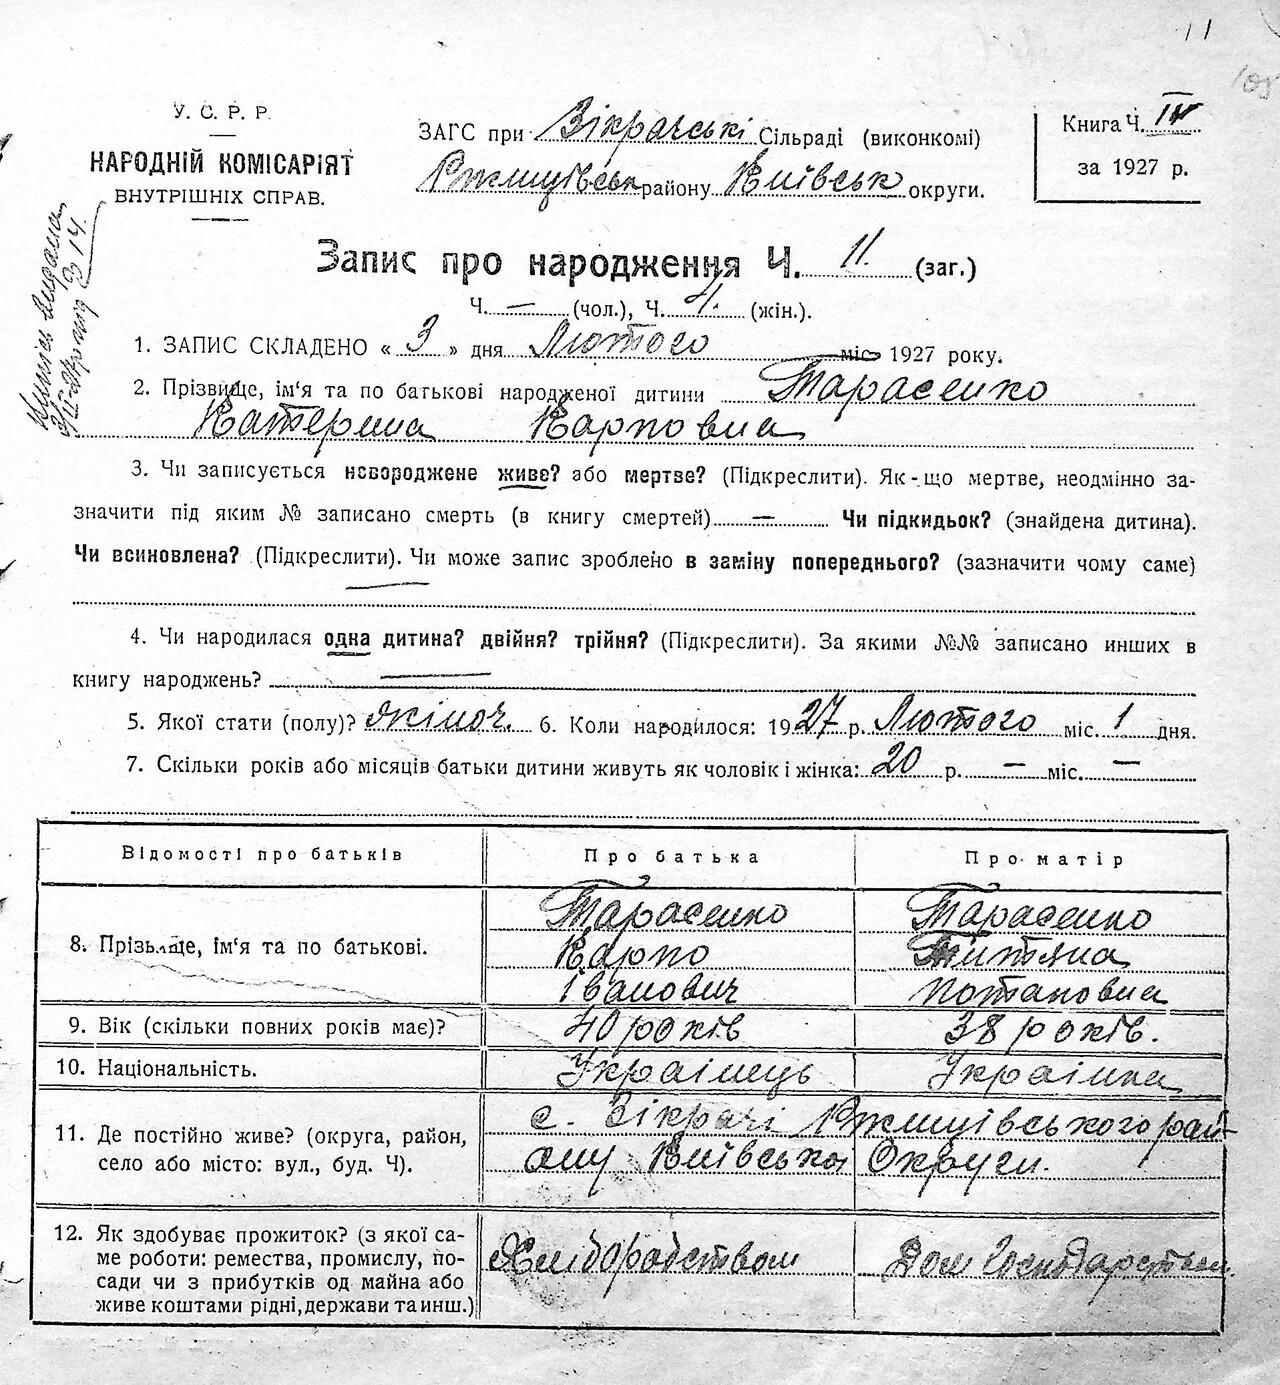 11
105
У. С. Р. Р.
НАРОДНІЙ КОМІСАРІЯТ
ВНУТРІШНІХ СПРАВ.
ЗАГС при Зікрачські Сільраді (виконкомі)
Ржищівськ району Київськ округи.
Книга Ч. IV
за 1927 р.
Запис про народження Ч. 11 (заг.)
Ч. — (чол.), Ч. 4. (жін.).
1. ЗАПИС СКЛАДЕНО « 3 » дня Лютого міс 1927 року.
2. Прізвище, ім‘я та по батькові народженої дитини Тарасенко
Катерина Карповна
3. Чи записується новороджене живе? або мертве? (Підкреслити). Як-що мертве, неодмінно за-
значити під яким № записано смерть (в книгу смертей) — Чи підкидьок? (знайдена дитина).
Чи всиновлена? (Підкреслити). Чи може запис зроблено в заміну попереднього? (зазначити чому саме)
4. Чи народилася одна дитина? двійня? трійня? (Підкреслити). За якими №№ записано инших в
книгу народжень? —
5. Якої стати (полу)? жіноч. 6. Коли народилося: 1927 р. Лютого міс. 1 дня.
7. Скільки років або місяців батьки дитини живуть як чоловік і жінка: 20 р. — міс. —
Відомості про батьків Про батька Про матір
8. Прізвище, ім‘я та по батькові. Тарасенко Карпо Іванович Тарасенко Титяна Потаповна
9. Вік (скільки повних років має)? 40 років 38 років.
10. Національність. Українець Українка
11. Де постійно живе? (округа, район, с. Зікрачі Ржищівського рай-
село або місто: вул., буд. Ч). ону Київська Округи.
12. Як здобуває прожиток? (з якої са-
ме роботи: ремества, промислу, по- Хліборобством Дом Господарством.
сади чи з прибутків од майна або
живе коштами рідні, держави та инш.)